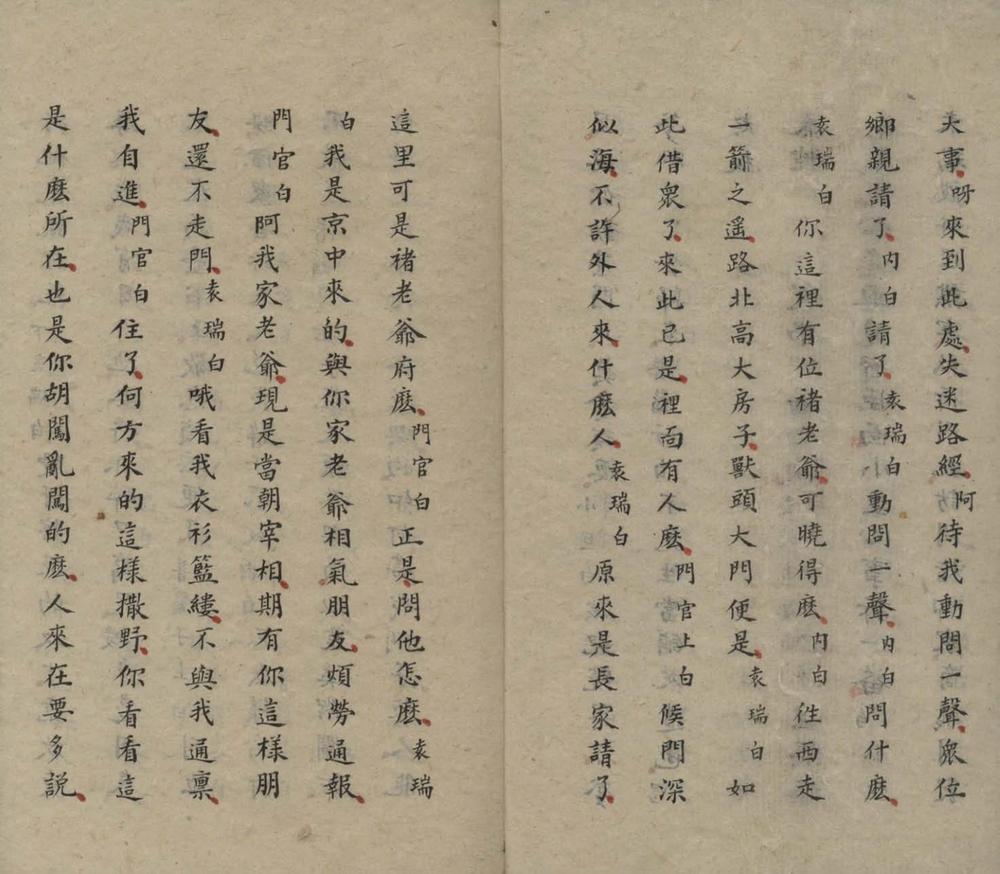 天事呀來到此處失迷路經阿待我動問一聲衆位
鄉親請了內白請了袁瑞白動問一聲內白問什麽
袁瑞白你這裡有位禇老爺可曉得麽內白徃西走
一箭之遥路北高大房子獸頭大門便是袁瑞白如
此借衆了來此已是裡面有人麽門官上白候門深
似海不許外人來什麽人袁瑞白原來是長家請了
這里可是禇老爺府麽門官白正是問他怎麽袁瑞
白我是京中來的與你家老爺相氣朋友煩勞通報
門官白阿我家老爺現是當朝宰相期有你這樣朋
友還不走門袁瑞白哦看我衣衫籃縷不與我通禀
我自進門官白住了何方來的這樣撒野你看看這
是什麽所在也是你胡闖亂闖的麽人來在要多説